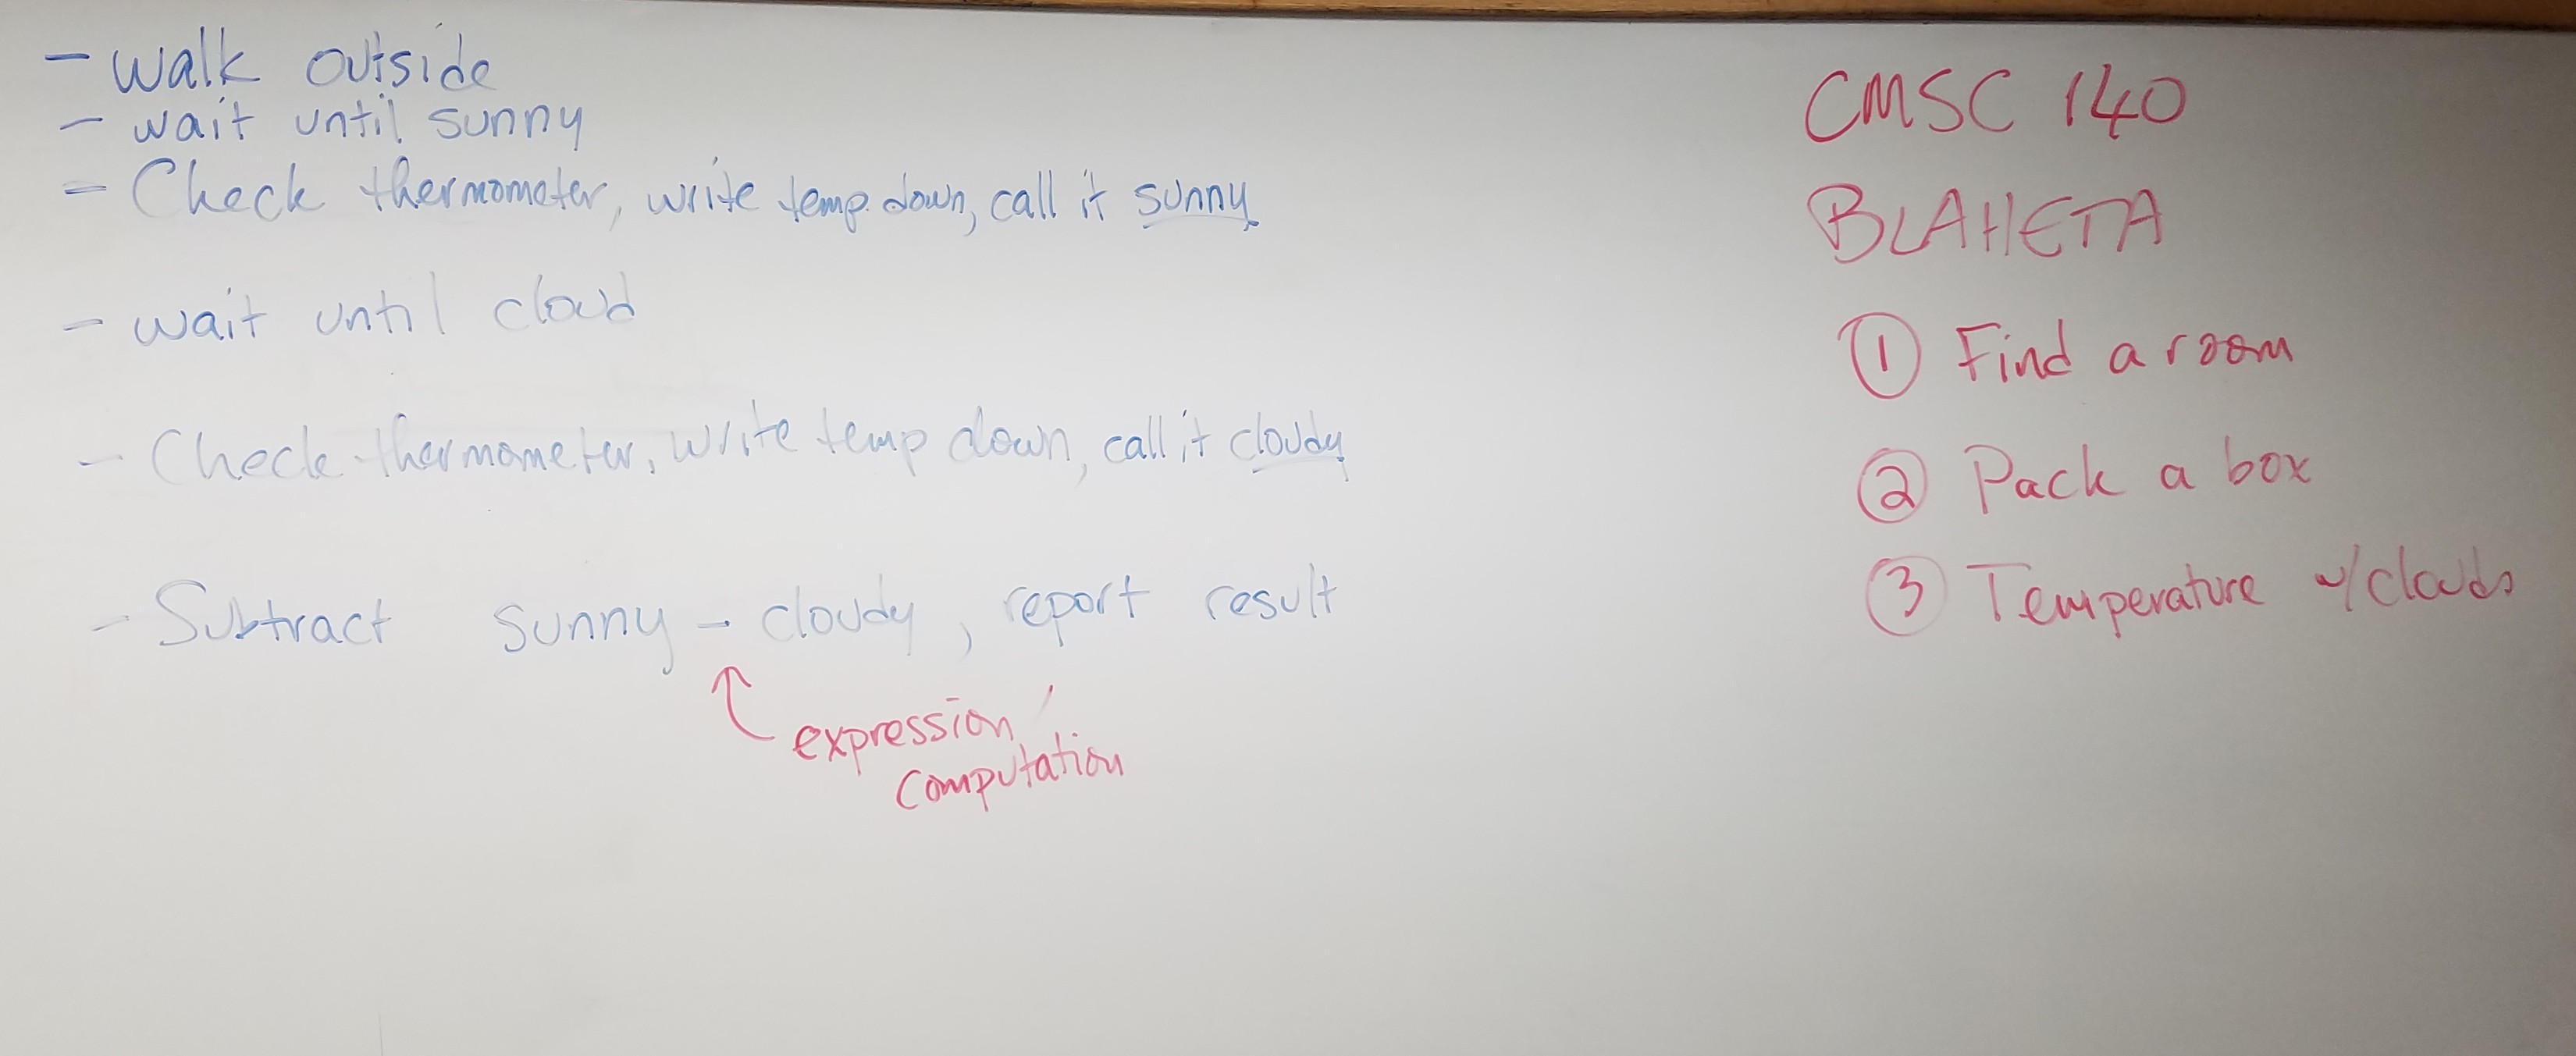 - walk outside
- wait until sunny
- Check thermometer, write temp. down, call it sunny.
- wait until cloud
- Check thermometer, write temp down, call it cloudy
- Subtract sunny - cloudy, report result
expression/
computation
CMSC 140
BLAHETA
① Find a room
② Pack a box
③ Temperature w/clouds